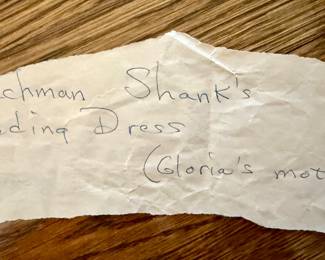 chman Shank's
ding Dress
(Gloria's mot